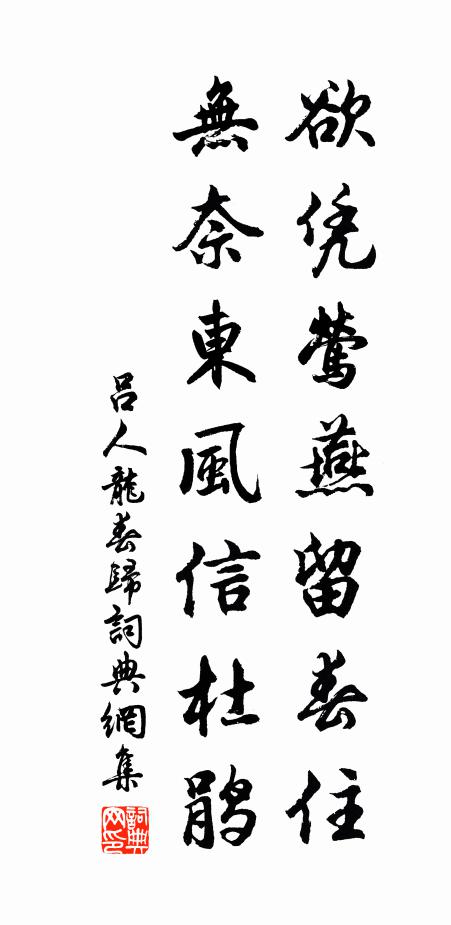 欲凭鶯燕留春住
無奈東風信杜鵑
呂人龍春歸詞典網集
詞典网印